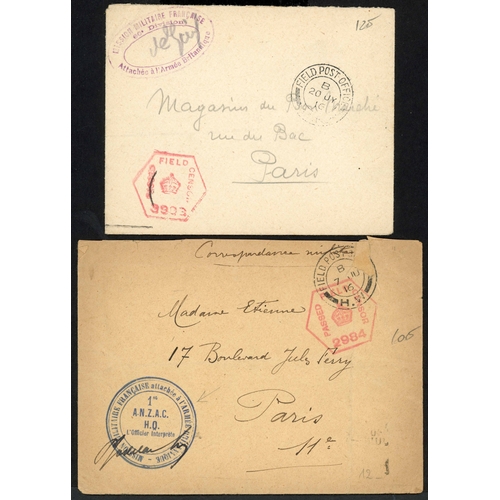 MISSION MILITAIRE FRANÇAISE
Division
Attachée à l'Armée Britannique
125
FIELD POST OFFICE
B
20 JY
16
Magasins du Bon Marché
rue du Bac
Paris
FIELD CENSOR
3993
Correspondance militaire
FIELD POST
B
7
16
H.W
PASSED
2984
100
Madame Etienne
17 Boulevard Jules Ferry
Paris
11e
MILITAIRE FRANÇAISE attachée à l'ARMÉE
1er
A.N.Z.A.C.
H.Q.
L'Officier Interprète
12 -